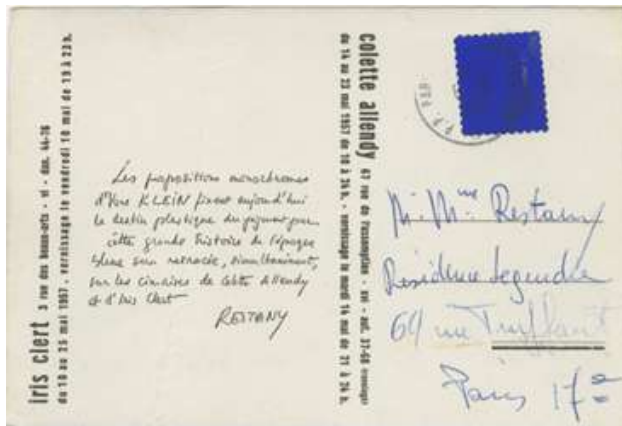 iris clert 3 rue des beaux-arts - vi - dan. 44-76
du 10 au 25 mai 1957 . vernissage le vendredi 10 mai de 19 à 22h.
Les propositions monochromes
d'Yves KLEIN fixent aujourd'hui
le destin plastique du pigment pur.
Cette grande histoire de l'époque
bleue sera retracée, simultanément,
sur les cimaises de Colette Allendy
et d'Iris Clert
RESTANY
colette allendy 67 rue de l'assomption - xvi - aut.
du 14 au 23 mai 1957 de 10 à 24 h. - vernissage le mardi 14 mai de 21 à 24 h.
M. Mme Restany
Résidence Legendre
64 rue Truffaut
Paris 17e